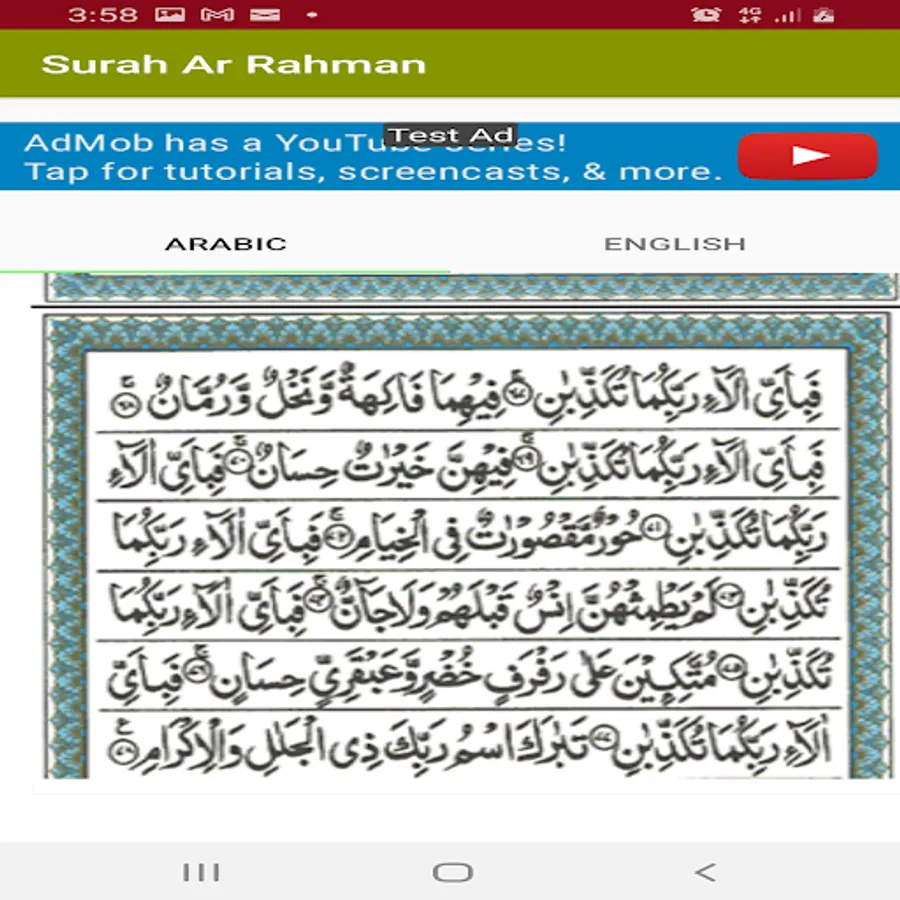 3:58
4G
Surah Ar Rahman
Test Ad
AdMob has a YouTube series!
Tap for tutorials, screencasts, & more.
ARABIC
ENGLISH
فَبِاَيِّ اٰلَآءِ رَبِّكُمَا تُكَذِّبٰنِ ﴿۶۷﴾ فِيْهِمَا فَاكِهَةٌ وَّنَخْلٌ وَّرُمَّانٌ ﴿۶۸﴾ۚ
فَبِاَيِّ اٰلَآءِ رَبِّكُمَا تُكَذِّبٰنِ ﴿۶۹﴾ۚ فِيْهِنَّ خَيْرٰتٌ حِسَانٌ ﴿۷۰﴾ۚ فَبِاَيِّ اٰلَآءِ
رَبِّكُمَا تُكَذِّبٰنِ ﴿۷۱﴾ حُوْرٌ مَّقْصُوْرٰتٌ فِى الْخِيَامِ ﴿۷۲﴾ۚ فَبِاَيِّ اٰلَآءِ رَبِّكُمَا
تُكَذِّبٰنِ ﴿۷۳﴾ لَمْ يَطْمِثْهُنَّ اِنْسٌ قَبْلَهُمْ وَلَا جَآنٌّ ﴿۷۴﴾ۚ فَبِاَيِّ اٰلَآءِ رَبِّكُمَا
تُكَذِّبٰنِ ﴿۷۵﴾ مُتَّكِـِٕيْنَ عَلٰى رَفْرَفٍ خُضْرٍ وَّعَبْقَرِيٍّ حِسَانٍ ﴿۷۶﴾ۚ فَبِاَيِّ
اٰلَآءِ رَبِّكُمَا تُكَذِّبٰنِ ﴿۷۷﴾ تَبٰرَكَ اسْمُ رَبِّكَ ذِى الْجَلٰلِ وَالْاِكْرَامِ ﴿۷۸﴾